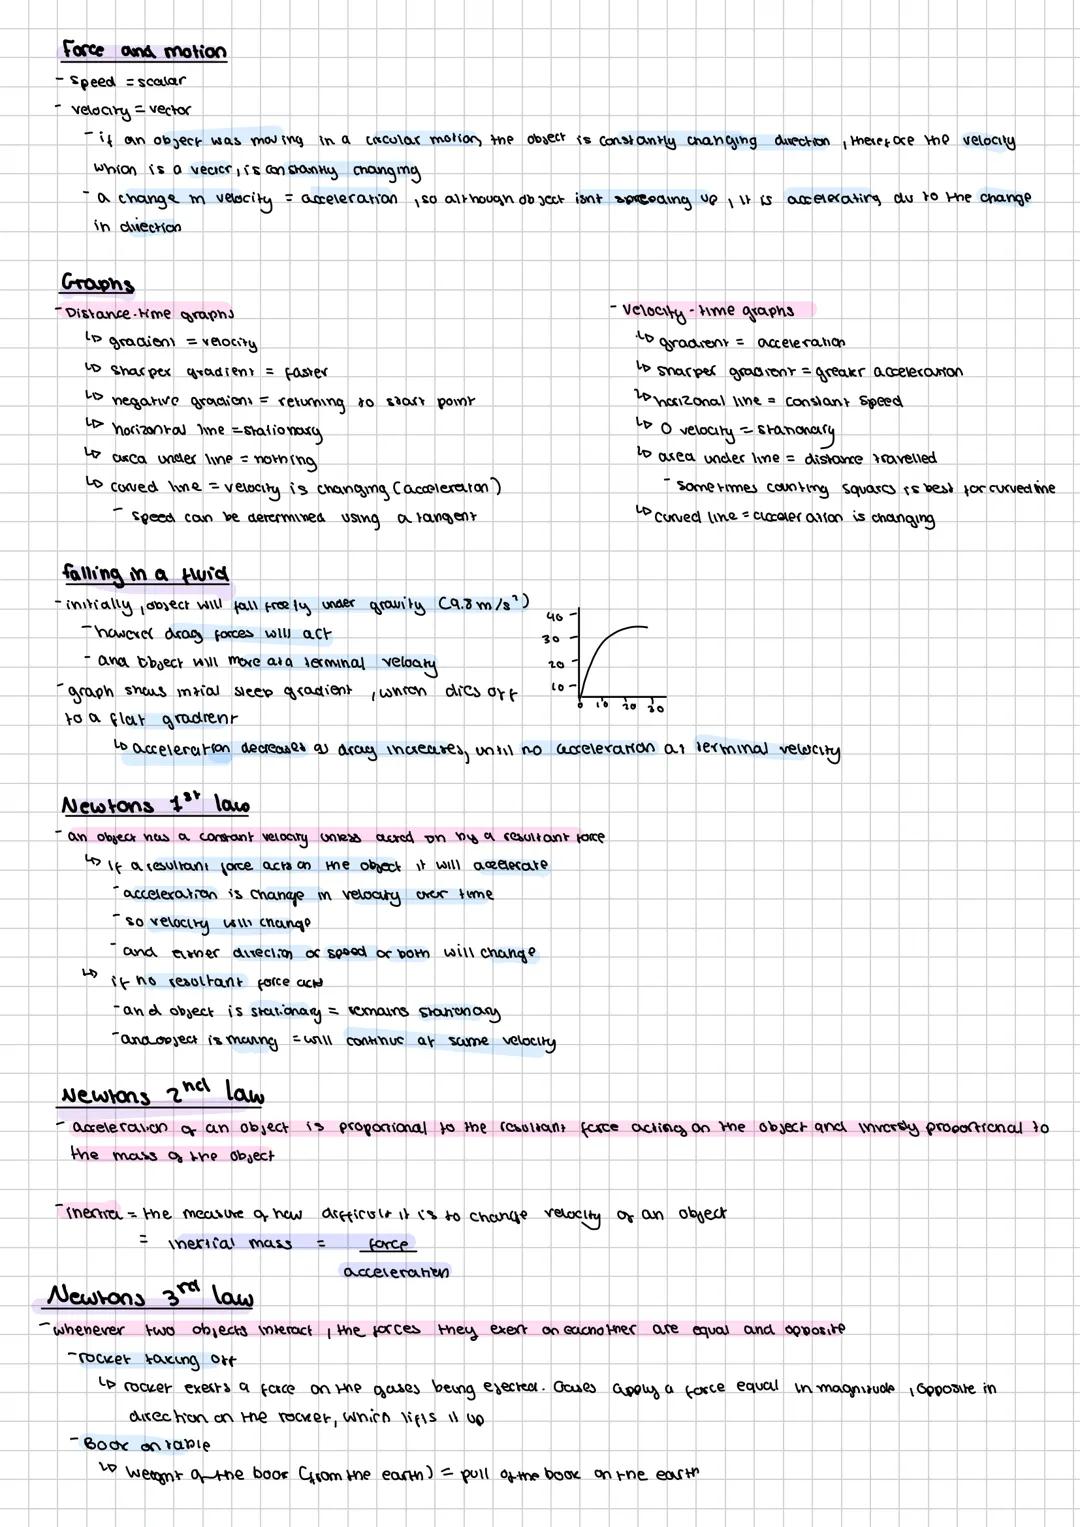 Force and motion
- speed = scalar
- velocity = vector
- if an object was moving in a circular motion, the object is constantly changing direction, therefore the velocity
which is a vector, is constantly changing
- a change in velocity = acceleration, so although object isnt speeding up, it is accelerating du to the change
in direction
Graphs
- Distance-time graphs
↳ gradient = velocity
↳ sharper gradient = faster
↳ negative gradient = returning to start point
↳ horizontal line = stationary
↳ area under line = nothing
↳ curved line = velocity is changing (acceleration)
- speed can be determined using a tangent
- velocity-time graphs
↳ gradient = acceleration
↳ sharper gradient = greater acceleration
↳ horizonal line = constant speed
↳ 0 velocity = stationary
↳ area under line = distance travelled
- sometimes counting squares is best for curved line
↳ curved line = acceleration is changing
falling in a fluid
- initially, object will fall freely under gravity (9.8 m/s²)
- however drag forces will act
- and object will move at a terminal velocity
- graph shows initial steep gradient, which dies off
to a flat gradient
↳ acceleration decreases as drag increases, until no acceleration at terminal velocity
40
30
20
10
0 10 20 30
Newtons 1st law
- an object has a constant velocity unless acted on by a resultant force
↳ if a resultant force acts on the object it will accelerate
- acceleration is change in velocity over time
- so velocity will change
- and either direction or speed or both will change
↳ if no resultant force acts
- and object is stationary = remains stationary
- and object is moving = will continue at same velocity
Newtons 2nd law
- acceleration of an object is proportional to the resultant force acting on the object and inversly proportional to
the mass of the object
- inertia = the measure of how difficult it is to change velocity of an object
= inertial mass = force
acceleration
Newtons 3rd law
- whenever two objects interact, the forces they exert on eachother are equal and opposite
- rocket taking off
↳ rocket exerts a force on the gases being ejected. Gases apply a force equal in magnitude, opposite in
direction on the rocket, which lifts it up
- Book on table
↳ weight of the book (from the earth) = pull of the book on the earth